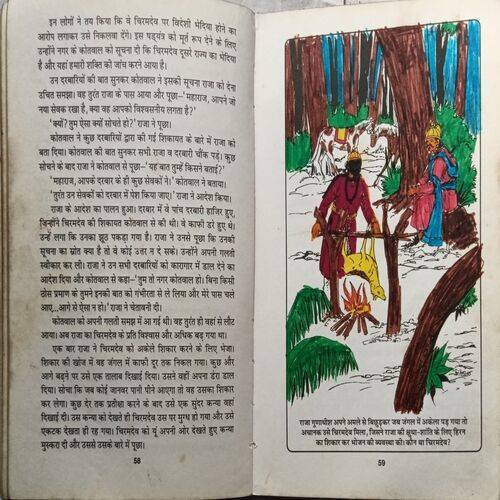 इन लोगों ने तय किया कि वे चिरमदेव पर विदेशी भेदिया होने का
आरोप लगाकर उसे निकलवा देंगे। इस षड्यंत्र को मूर्त रूप देने के लिए
उन्होंने नगर के कोतवाल को सूचना दी कि चिरमदेव दूसरे राज्य का भेदिया
है और यहां हमारी शक्ति को जांच करने आया है।
उन दरबारियों की बात सुनकर कोतवाल ने इसकी सूचना राजा को देना
उचित समझा। वह तुरंत राजा के पास आया और पूछा—'महाराज, आपने जो
नया सेवक रखा है, क्या वह आपको विश्वसनीय लगता है?'
'क्यों? तुम ऐसा क्यों सोचते हो?' राजा ने पूछा।
कोतवाल ने कुछ दरबारियों द्वारा की गई शिकायत के बारे में राजा को
बता दिया। कोतवाल की बात सुनकर सभी राजा व दरबारी चौंक पड़े। कुछ
सोचने के बाद राजा ने कोतवाल से पूछा—'यह बात तुम्हें किसने बताई?'
'महाराज, आपके दरबार के ही कुछ सेवकों ने।' कोतवाल ने बताया।
'तुरंत उन सेवकों को दरबार में पेश किया जाए।' राजा ने आदेश किया।
राजा के आदेश का पालन हुआ। दरबार में वे पांच दरबारी हाजिर हुए,
जिन्होंने चिरमदेव की शिकायत कोतवाल से की थी। वे काफी डरे हुए थे।
उन्हें लगा कि उनका झूठ पकड़ा गया है। राजा ने उनसे पूछा कि उनकी
सूचना का स्रोत क्या है तो वे कोई उत्तर न दे सके। उन्होंने अपनी गलती
स्वीकार कर ली। राजा ने उन सभी दरबारियों को कारागार में डाल देने का
आदेश दिया और कोतवाल से कहा—'तुम तो नगर कोतवाल हो। बिना किसी
ठोस प्रमाण के तुमने इनकी बात को गंभीरता से ले लिया और मेरे पास चले
आए...आगे से ऐसा न हो।' राजा ने चेतावनी दी।
कोतवाल को अपनी गलती समझ में आ गई थी। वह तुरंत ही वहां से लौट
आया। अब राजा का चिरमदेव के प्रति विश्वास और अधिक बढ़ गया था।
एक बार राजा ने चिरमदेव को अकेले शिकार करने के लिए भेजा।
शिकार की खोज में वह जंगल में काफी दूर तक निकल गया। कुछ और
आगे बढ़ने पर उसे एक तालाब दिखाई दिया। उसने वहीं अपना डेरा डाल
दिया। सोचा कि जब कोई जानवर पानी पीने आएगा तो वह उसका शिकार
कर लेगा। कुछ देर तक प्रतीक्षा करने के बाद उसे एक सुंदर कन्या वहां
दिखाई दी। उस कन्या को देखते ही चिरमदेव उस पर मुग्ध हो गया और उसे
एकटक देखता ही रह गया। चिरमदेव को यूं अपनी ओर देखते हुए कन्या
मुस्करा दी और उससे उसके बारे में पूछा।
58
राजा गुणाधीश अपने अमले से बिछुड़कर जब जंगल में अकेला पड़ गया तो
अचानक उसे चिरमदेव मिला, जिसने राजा की क्षुधा-शांति के लिए हिरन
का शिकार कर भोजन की व्यवस्था की। कौन था चिरमदेव?
59